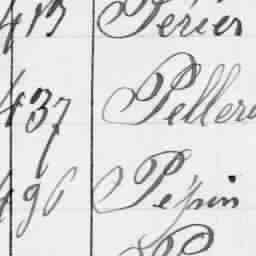 413 Périer
437 Peller
496 Pépin